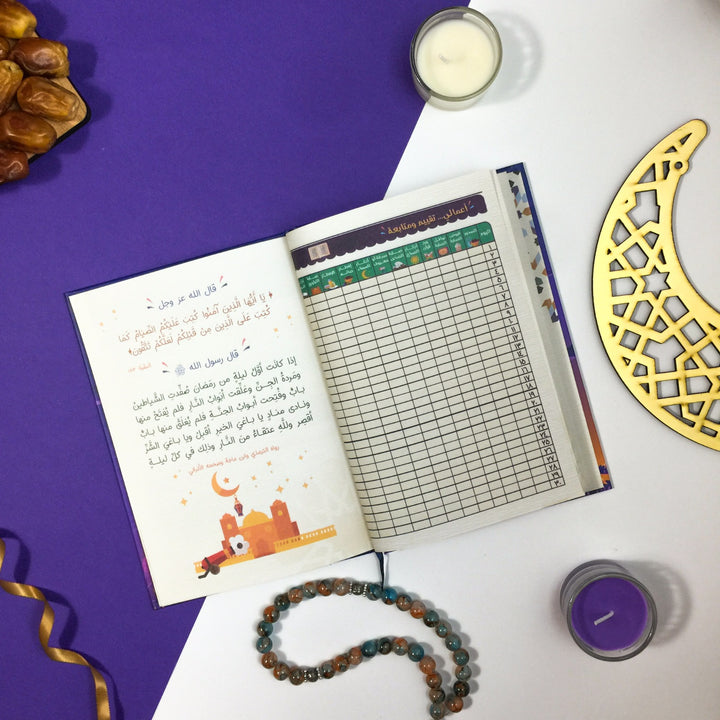 قال الله عز وجل
﴿ يَا أَيُّهَا الَّذِينَ آمَنُوا كُتِبَ عَلَيْكُمُ الصِّيَامُ كَمَا
كُتِبَ عَلَى الَّذِينَ مِنْ قَبْلِكُمْ لَعَلَّكُمْ تَتَّقُونَ ﴾
قال رسول الله ﷺ
إذا كانت أوَّلُ ليلةٍ من رمضان صُفِّدتِ الشَّياطينُ
ومَردةُ الجِنِّ وغلِّقت أبوابُ النَّارِ فلم يُفتَحْ منها
بابٌ وفُتِحت أبوابُ الجنَّةِ فلم يُغلَقْ منها بابٌ
ونادى منادٍ يا باغيَ الخيرِ أقبِلْ ويا باغيَ الشَّرِّ
أقصِر وللَّهِ عتقاءُ من النَّارِ وذلك في كلِّ ليلةٍ
رواه الترمذي وابن ماجة وصححه الألباني
أعمالي... تقييم ومتابعة
اليوم
٢
٣
٤
٥
٦
٧
٨
٩
١٠
١١
١٢
١٣
١٤
١٥
١٦
١٧
١٨
١٩
٢٠
٢١
٢٢
٢٣
٢٤
٢٥
٢٦
٢٧
٢٨
٢٩
٣٠